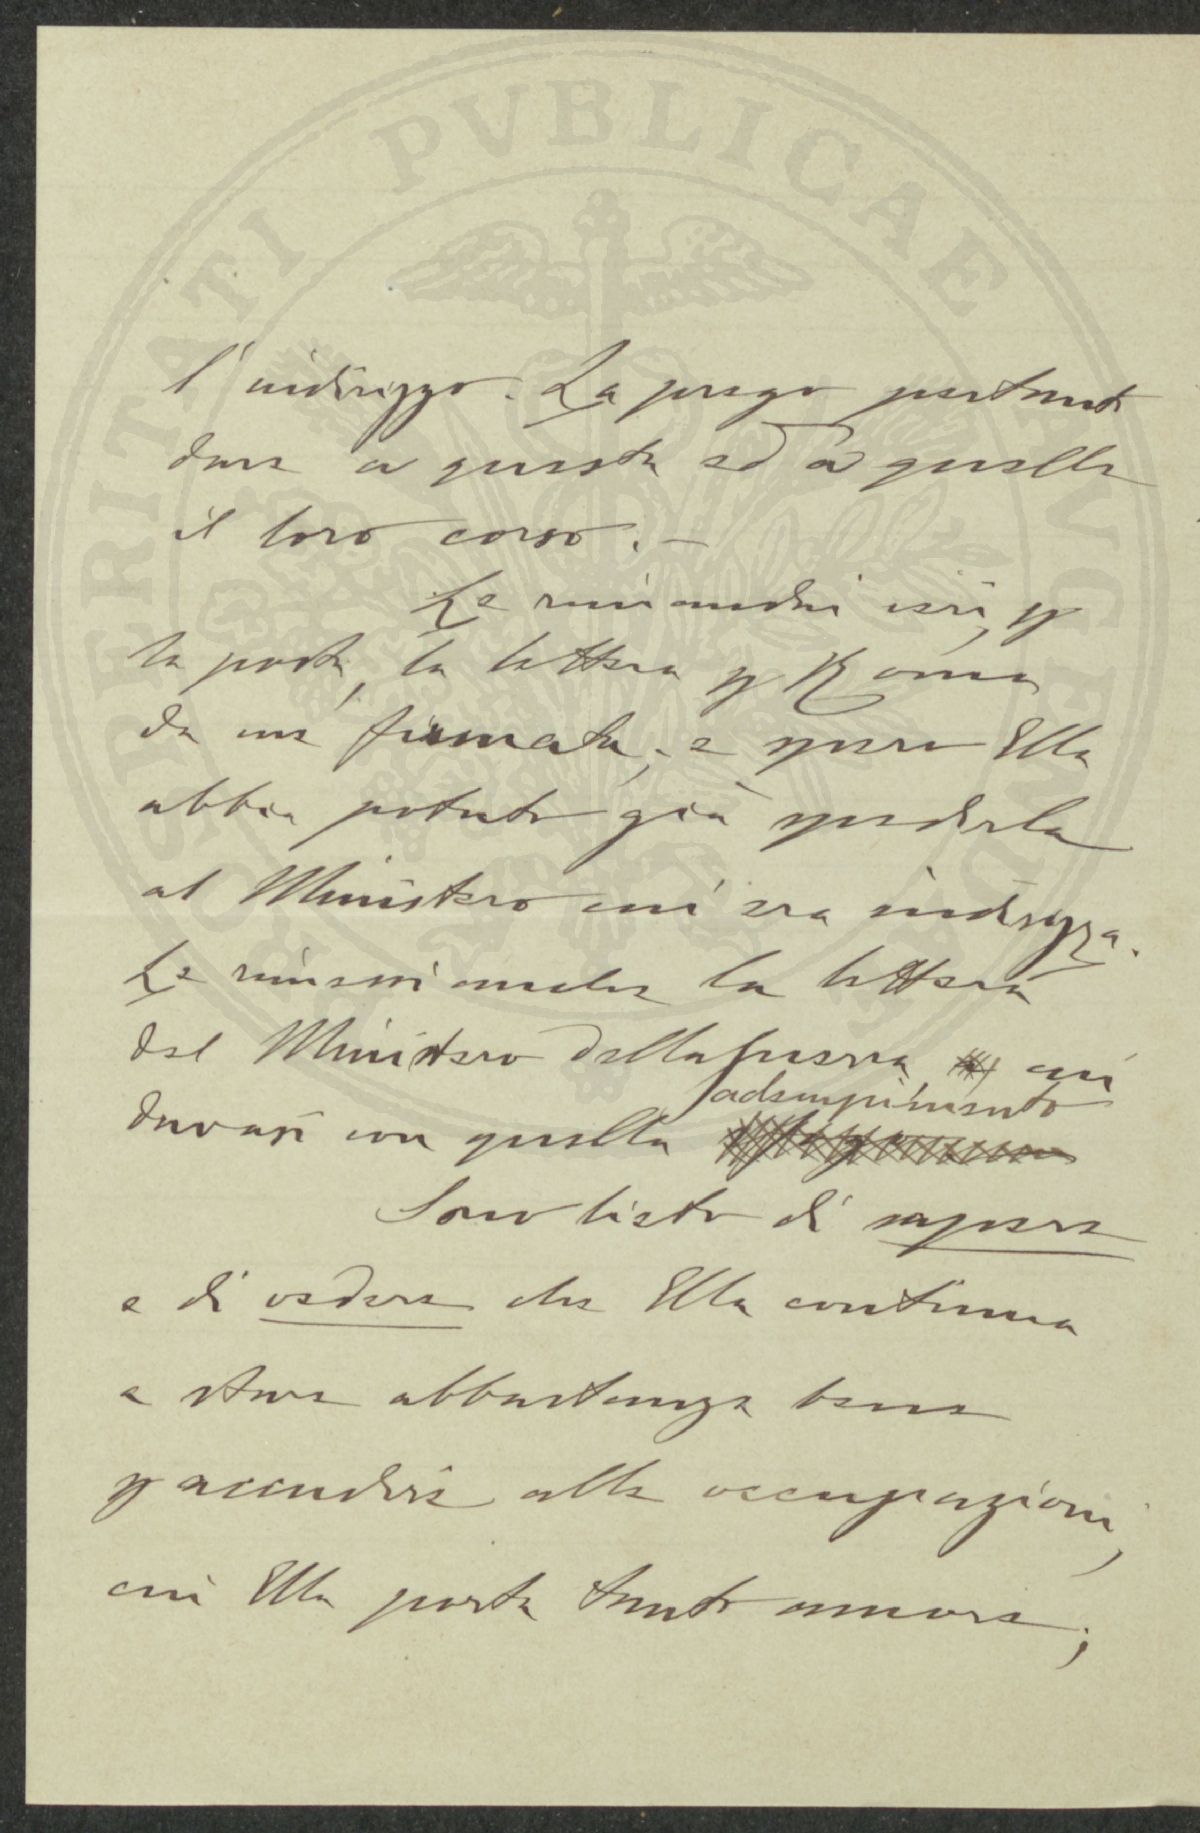 PROSPERITATI PVBLICAE AVGENDAE
l'indirizzo. La prego pertanto
dare a questa ed a quella
il loro corso. —
Le rimandai ieri, p
la posta, la lettera p Roma
da me firmata; e spero Ella
abbia potuto già spedirla
al Ministero cui era indirizza.
Le rinvio anche la lettera
del Ministero della Guerra, cui
davasi con quella adempimento
Sono lieto di sapere
e di vedere che Ella continua
a stare abbastanza bene
p accudire alle occupazioni,
cui Ella porta tanto amore;